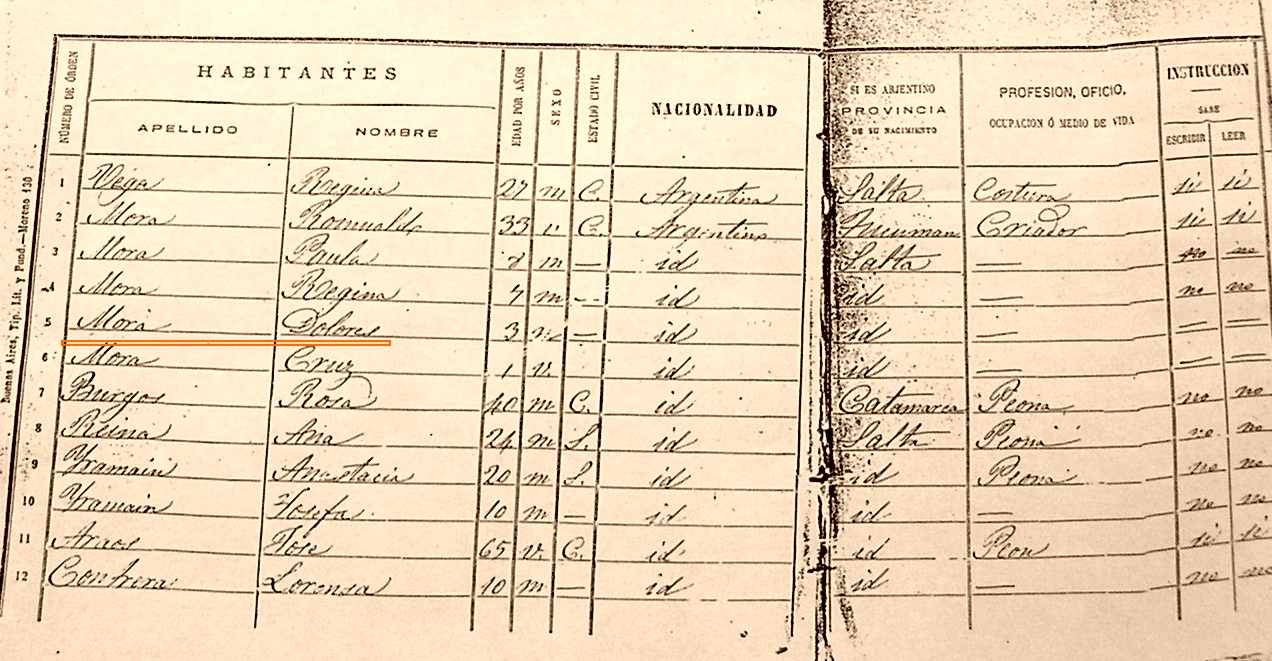 HABITANTES
NÚMERO DE ÓRDEN APELLIDO NOMBRE EDAD POR AÑOS SEXO ESTADO CIVIL NACIONALIDAD SI ES ARJENTINO PROVINCIA DE SU NACIMIENTO PROFESION, OFICIO, OCUPACION Ó MEDIO DE VIDA INSTRUCCION SABE ESCRIBIR LEER
1 Vega Regina 27 m C. Argentina Salta Costura si si
2 Mora Romualdo 33 v C. Argentino Tucuman Criador si si
3 Mora Paula m — id Salta — no no
4 Mora Regina 7 m — id id — no no
5 Mora Dolores 3 — id id — — —
6 Mora Cruz 1 v. id id — — —
7 Burgos Rosa 40 m C. id Catamarca Peona no no
8 Reina Ana 24 m S. id Salta Peona no no
9 Yramain Anastacia 20 m S. id id Peona no no
10 Yramain Josefa 10 m — id id — no no
11 Araos Jose 65 v. C. id id Peon si si
12 Contrera Lorensa 10 m — id id — no no
Buenos Aires, Tip. Lit. y Fund.—Moreno 130